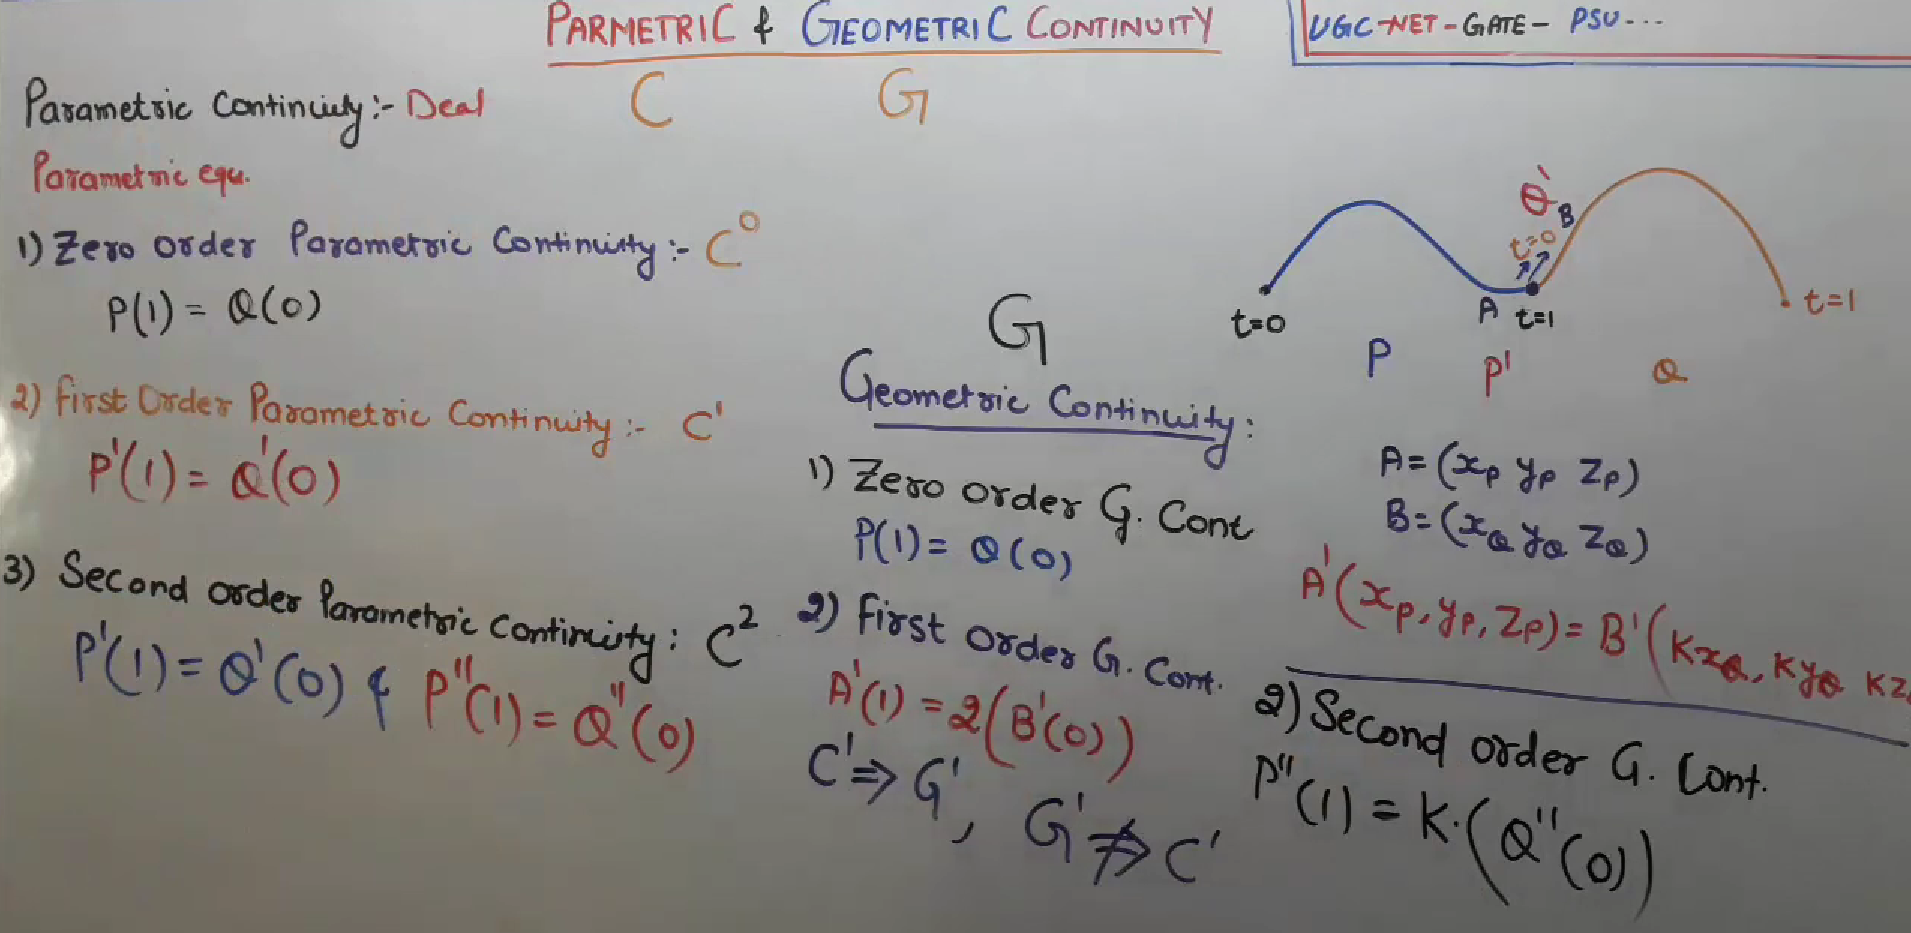 PARMETRIC & GEOMETRIC CONTINUITY
UGC-NET-GATE- PSU---
C G
Parametric Continuity:- Deal
Parametric equ.
1) Zero order Parametric Continuity:- C⁰
P(1) = Q(0)
2) First Order Parametric Continuity:- C'
P'(1) = Q'(0)
3) Second order Parametric Continuity: C²
P'(1) = Q'(0) & P''(1) = Q''(0)
G
Geometric Continuity:
1) Zero order G. Cont
P(1) = Q(0)
2) First order G. Cont.
A'(1) = 2(B'(0))
C' ⇒ G', G' ⇏ C'
Q'
B
t=0
t=0
A t=1
t=1
P P' Q
A = (xP yP ZP)
B = (xQ yQ ZQ)
A'(xP, yP, ZP) = B'(KxQ, KyQ KZ
2) Second order G. Cont.
P''(1) = K.(Q''(0))